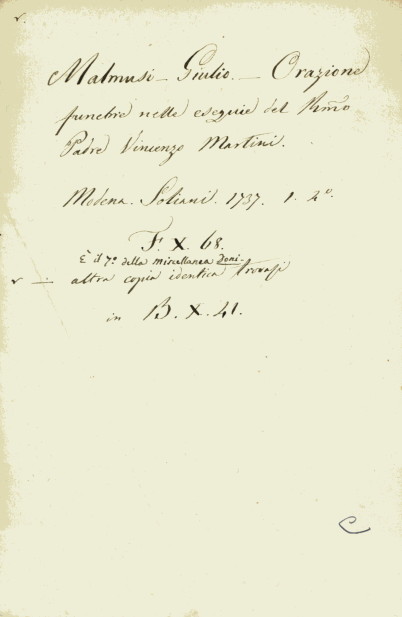 Malmusi – Giulio. – Orazione
funebre nelle esequie del Rmo
Padre Vincenzo Martini.
Modena. Soliani. 1737. 1. 2°.
F. X. 68.
È il 7° della miscellanea Doni.
altra copia identica trovasi
in B. X. 41.
C